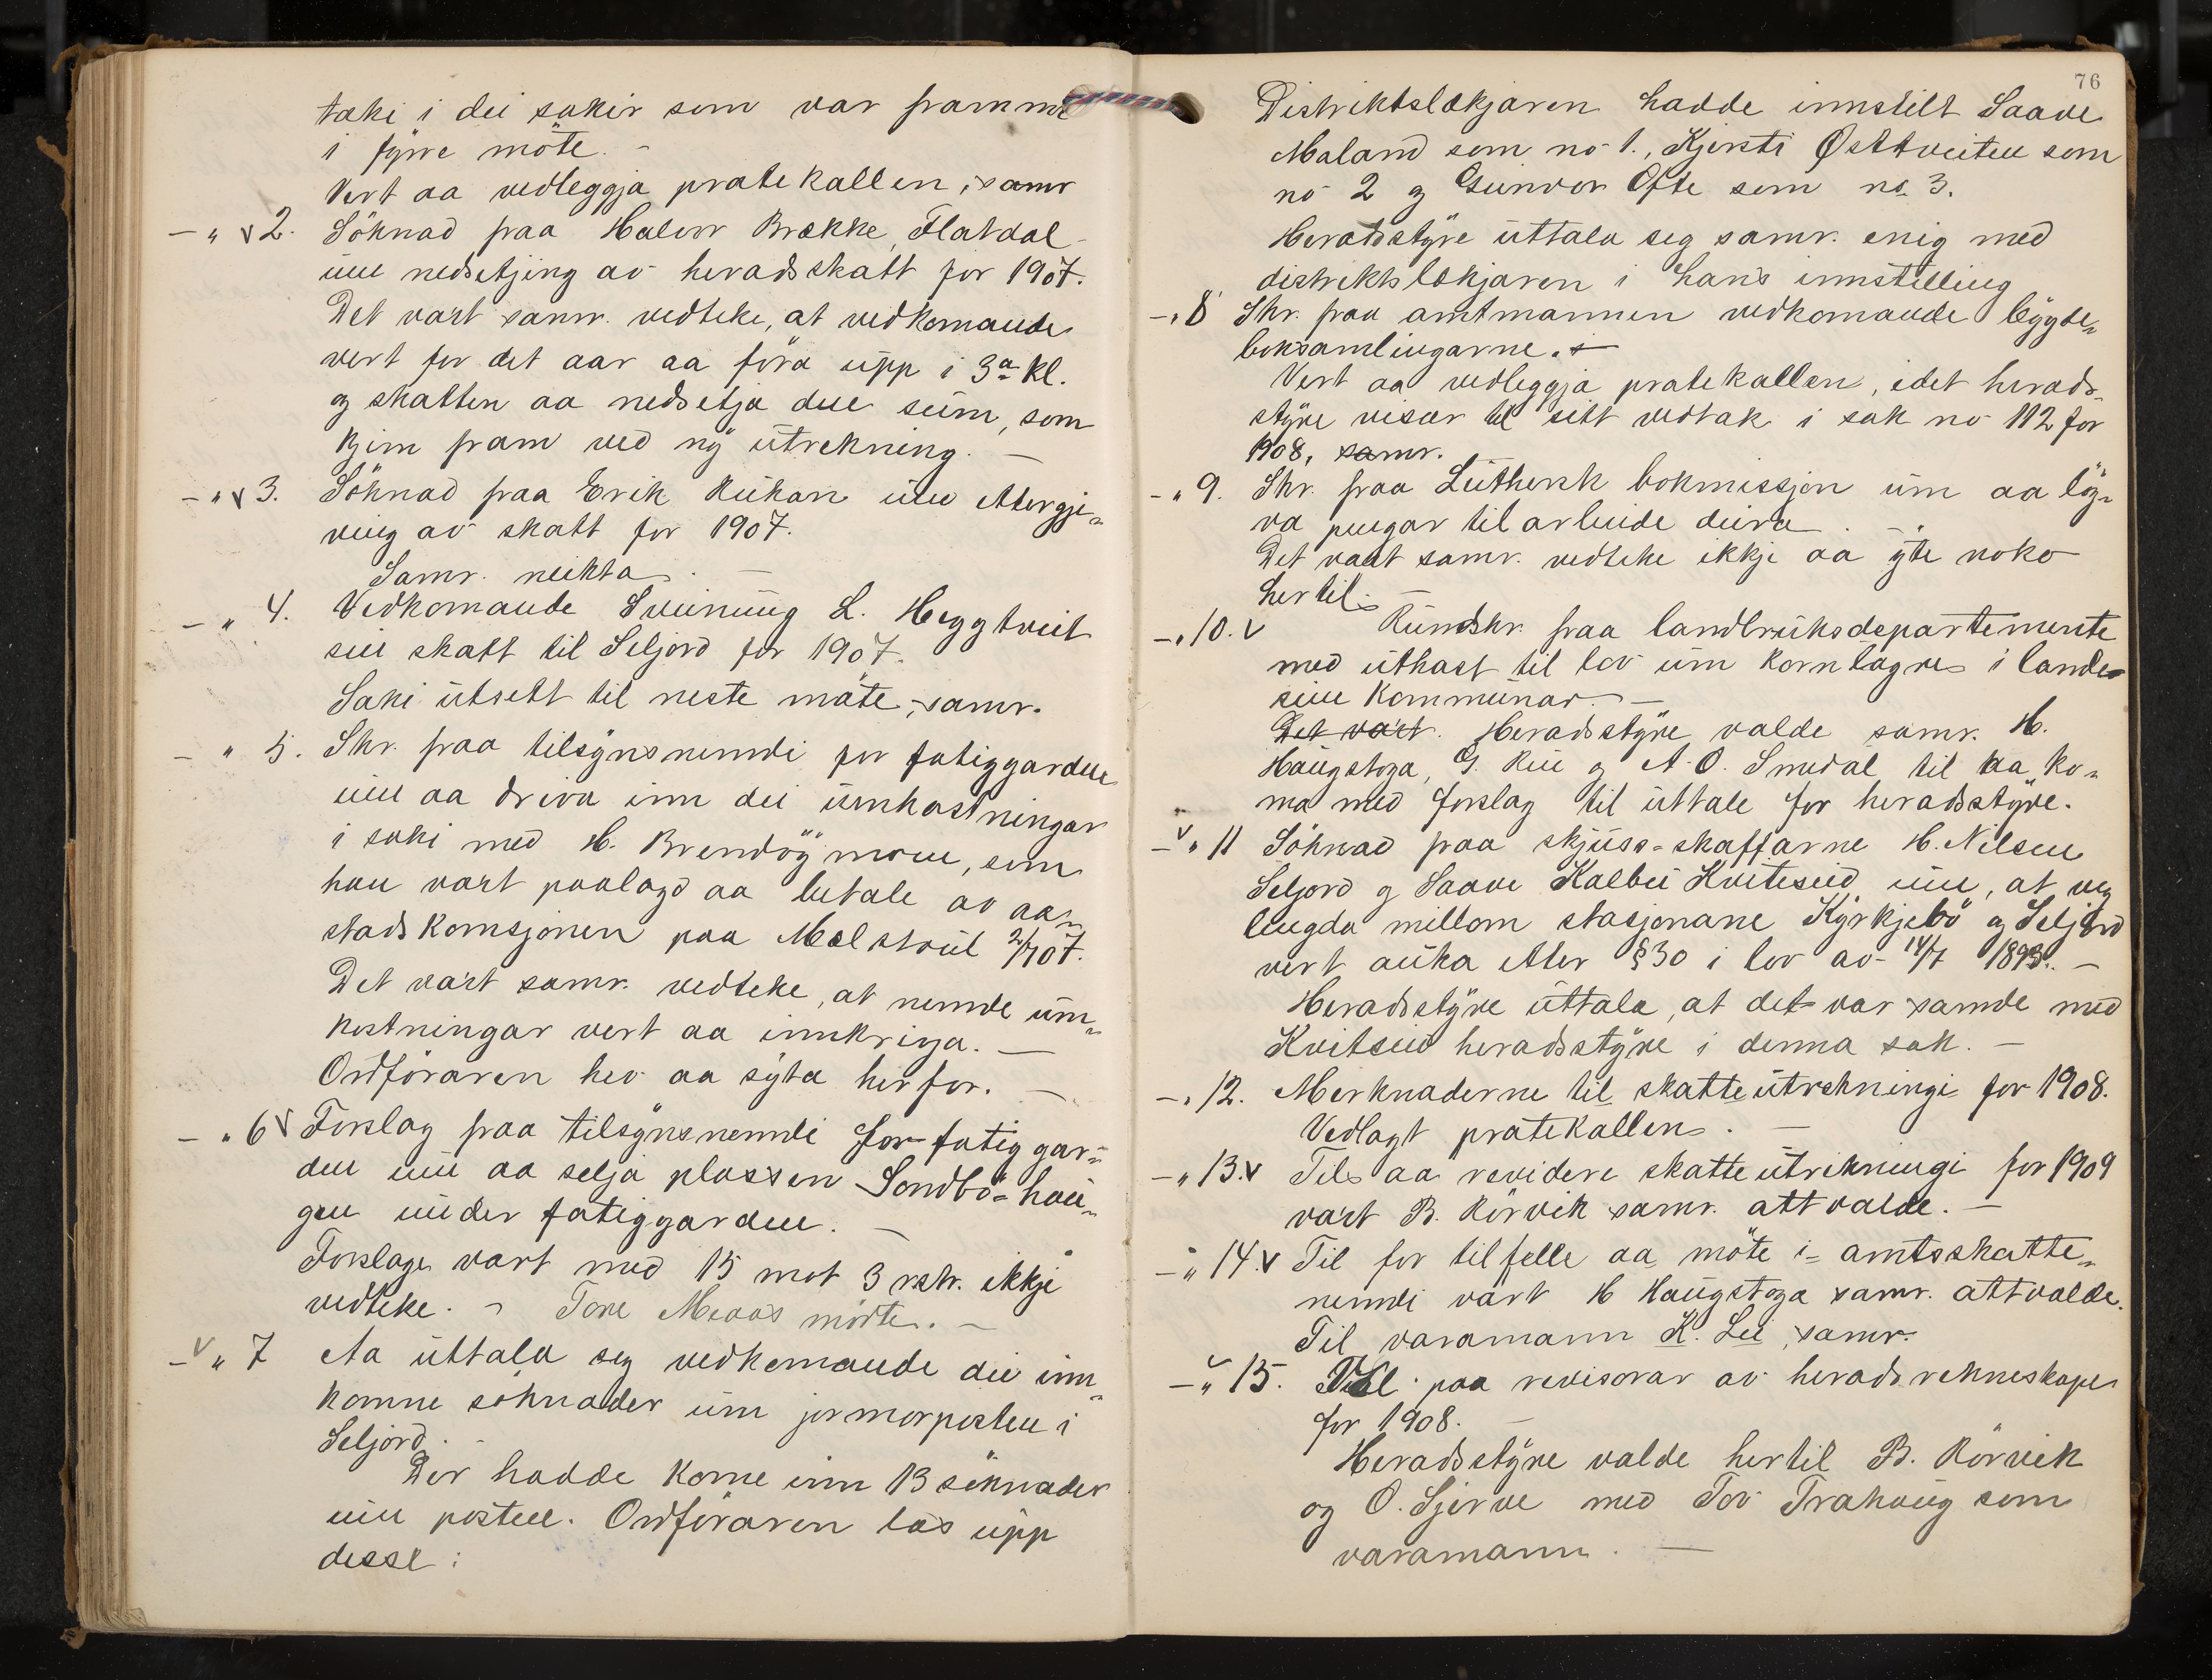 taki i dei sakir som var framme
i fyrre möte. -
Vert aa vedleggja pratekallen, samr
- " v 2. Söknad fraa Halvor Brække, Flatdal
um nedsetjing av heradsskatt for 1907.
Det vart samr. vedteke, at vedkomande
vert for det aar aa föra upp i 3a kl.
og skatten aa nedsetja den sum, som
kjem fram ved ny utrekning. -
- " v 3. Söknad fraa Erik Rukan um ettergje-
ving av skatt for 1907.
Samr. neikta. -
- " 4. Vedkomande Sveinung L. Heggtveit
sin skatt til Seljord for 1907.
Saki utsett til neste möte, samr.
- " 5. Skr. fraa tilsynsnemndi for fatiggarden
um aa driva inn dei umkostningar
i saki med H. Brendöymoen, som
han vart paalagd aa betale av aa-
stadskomsjonen paa Mælstoul 2/7 07.
Det vart samr. vedteke, at nemnde um-
kostningar vert aa innkrevja. -
Ordföraren hev aa syta herfor. -
- " 6 v Forslag fraa tilsynsnemndi for fatiggar-
den um aa selja plassen Sondbö-hau-
gen under fatiggarden. -
Forslage vart med 15 mot 3 rstr. ikkje
vedteke. - Tore Meaas mötte. -
- v " 7 Aa uttala seg vedkomande dei inn-
komne söknader um jormorposten i
Seljord. -
Der hadde kome inn 13 söknader
um posten. Ordföraren las upp
desse:
76
Distriktslækjaren hadde innstilt Saave
Maland som no 1., Kjersti Østtveiten som
no 2 og Gunvor Ofte som no. 3.
Heradsstyre uttala seg samr. enig med
distriktslækjaren i hans innstelling
- " 8 Skr. fraa amtmannen vedkomande bygde-
boksamlingarne. -
Vert aa vedleggja pratekallen, idet herads-
styre visar til sitt vedtak i sak no 112 for
1908, samr.
- " 9. Skr. fraa Luthersk bokmissjon um aa löy-
va pengar til arbeide deira. -
Det vart samr. vedteke ikkje aa yte noko
hertil. -
- " 10. v Rundskr. fraa landbruksdepartemente
med uthast til lov um kornlagre i lande
sine kommunar. -
Det vart. Heradsstyre valde samr. H.
Haugstoga, G. Rui og A. O. Smedal til aa ko-
ma med forslag til uttale for heradsstyre.
- v " 11 Söknad fraa skjuss-skaffarne H. Nilsen
Seljord og Saave Kalbei Kviteseid um, at veg
lengda millom stasjonane Kyrkjebö og Seljord
vert auka etter § 30 i lov av 14/7 1893. -
Heradsstyre uttala, at det var samde med
Kvitseid heradsstyre i denna sak. -
- " 12. Merknaderne til skatteutrekningi for 1908.
Vedlagt pratekallen. -
- " 13. v Til aa revidere skatteutrekningi for 1909
vart B. Rörvik samr. attvalde. -
- " 14. v Til for tilfelle aa möte i amtsskatte-
nemndi vart H Haugstoga samr. attvalde.
Til varamann K. Lei, samr.
- " 15. Val paa revisorar av heradsrekneskape
for 1908. -
Heradsstyre valde hertil B. Rörvik
og O. Gjerve med Tov Trahaug som
varamann. -